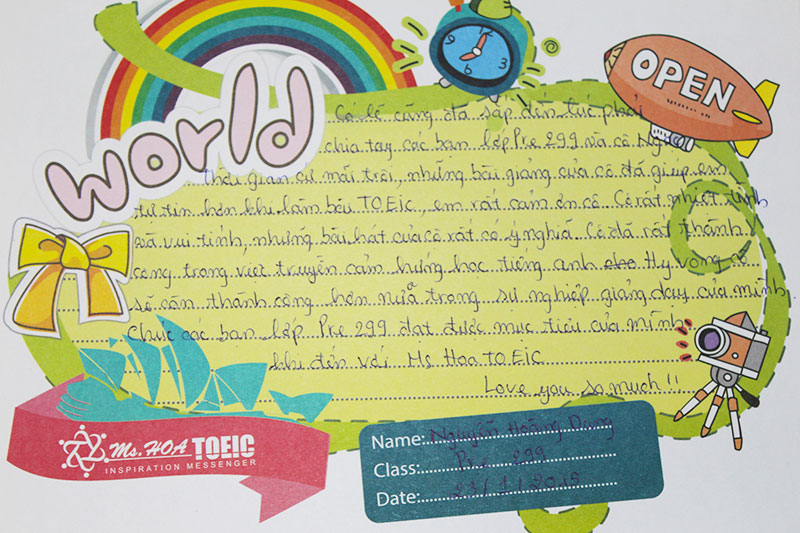 world
OPEN
Có lẽ cũng đã sắp đến lúc phải
chia tay các bạn lớp Pre 299 và cô
thời gian cứ mãi trôi, những bài giảng của cô đã giúp em
tự tin hơn khi làm bài TOEIC, em rất cảm ơn cô. Cô rất nhiệt tình
và vui tính, những bài hát của cô rất có ý nghĩa. Cô đã rất thành
công trong việc truyền cảm hứng học tiếng anh Hy vọng cô
sẽ còn thành công hơn nữa trong sự nghiệp giảng dạy của mình.
Chúc các bạn lớp Pre 299 đạt được mục tiêu của mình
khi đến với Ms Hoa TOEIC
Love you so much!!
Ms. HOA TOEIC
INSPIRATION MESSENGER
Name: Nguyễn Hoàng Dung
Class: Pre 299
Date: